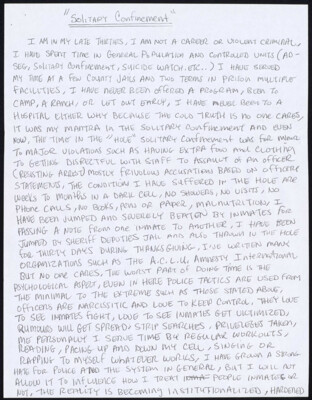 "Solitary Confinement"
I am in my late thirties, I am not a career or violent criminal,
I have spent time in General Population and controlled units (Ad-
Seg, Solitary Confinement, Suicide Watch, etc...) I have served
my time at a few County Jails and two terms in prison multiple
facilities, I have never been offered a program, been to
camp, a ranch, or let out early, I have never been to a
hospital either why because the cold truth is no one cares,
it was my mantra in the solitary confinement and even
now, the time in the "hole" solitary confinement was for minor
to major violations such as having extra food and clothing
to getting disrectful with staff to assault of an officer.
(resisting arrest) mostly frivolous accusations based on officers
statements, the conditions I have suffered in the hole are
weeks to months in a dark cell, no showers, no visits, no
phone calls, no books, pen or paper, malnutrition, I
have been jumped and severely beaten by inmates for
passing a note from one inmate to another, I have been
jumped by sheriff deputies jail and also thrown in the hole
for thirty days during thanksgiving, I've written many
organizations such as the A.C.L.U, Amnesty International
but no one cares. The worst part of doing time is the
psychological aspect, even in here police tactics are used from
the minimal to the extreme such as those stated above,
officers are narcisitic and love to keep control, they love
to see inmates fight, love to see inmates get victimized,
rumours will get spread, strip searches, privileges taken,
me personally I serve time by regular workouts,
reading, pacing up and down my cell, singing or
rapping to myself whatever works, I have grown a strong
hate for police and the system in general, but I will not
allow it to influence how I treat people inmates or
not, the reality is becoming institutionalized, hardened